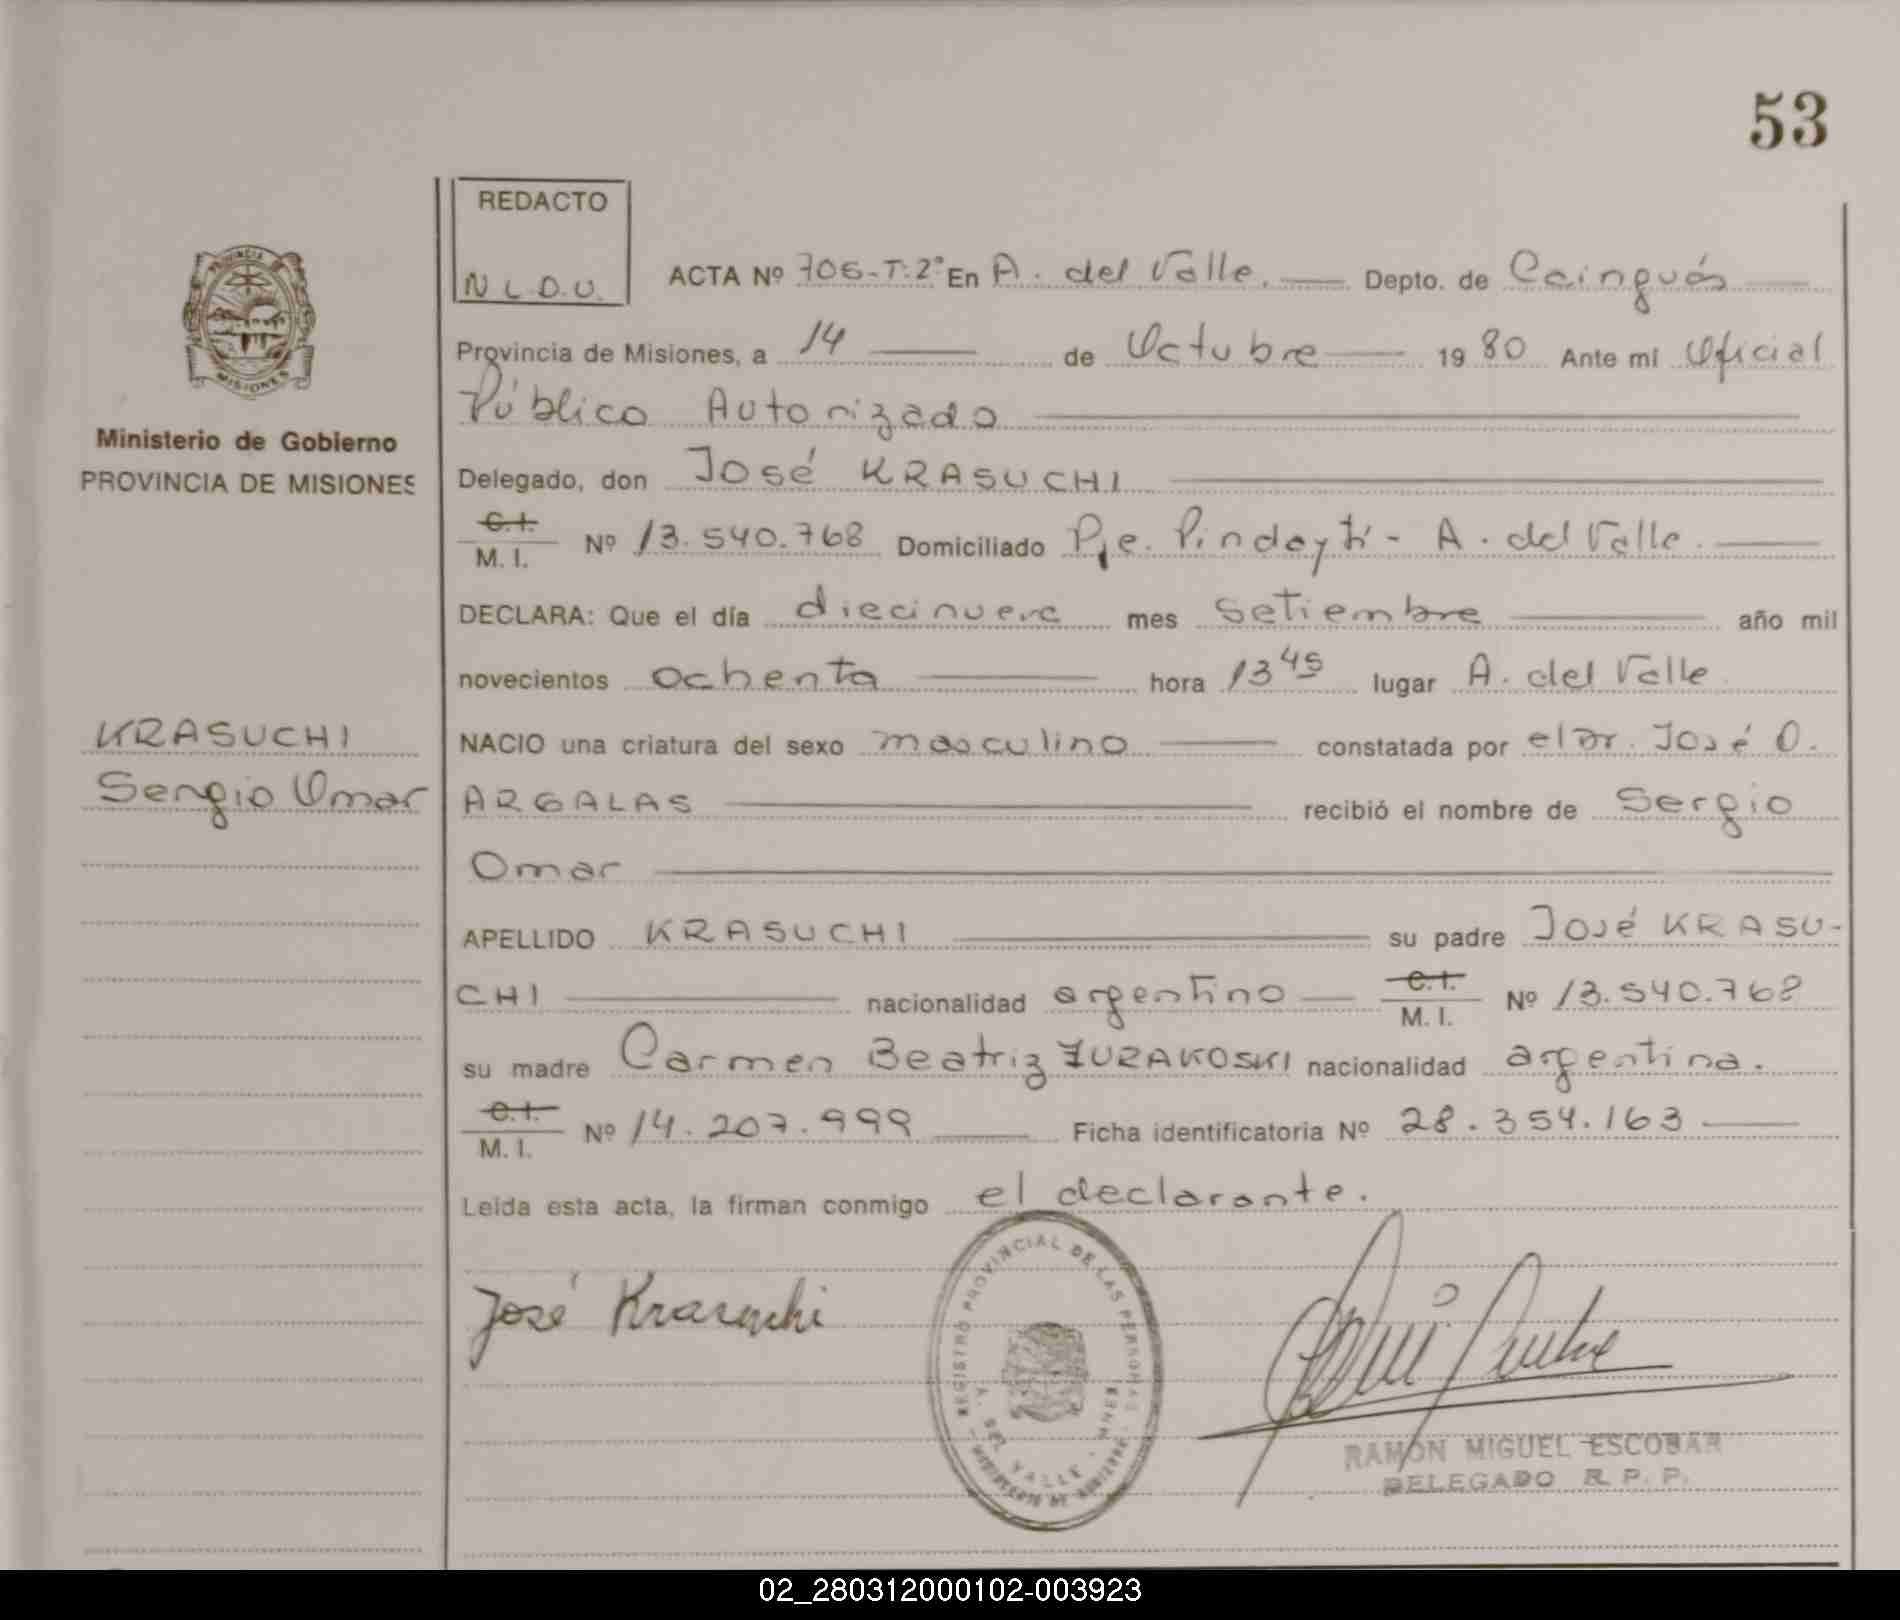 53
REDACTO
N L.D.U.
PROVINCIA
MISIONES
Ministerio de Gobierno
PROVINCIA DE MISIONES
KRASUCHI
Sergio Omar
ACTA Nº 706-T:2º En A. del Valle. Depto. de Cainguás
Provincia de Misiones, a 14 de Octubre 1980 Ante mi Oficial
Público Autorizado
Delegado, don José KRASUCHI
C.I.
M. I. Nº 13.540.768 Domiciliado Pje. Pindayti - A. del Valle.
DECLARA: Que el día diecinueve mes Setiembre año mil
novecientos ochenta hora 13 45 lugar A. del Valle
NACIO una criatura del sexo masculino constatada por el Dr. José O.
ARGALAS recibió el nombre de Sergio
Omar
APELLIDO KRASUCHI su padre José KRASU-
CHI nacionalidad argentino C.I. M. I. Nº 13.540.768
su madre Carmen Beatriz ZURAKOSKI nacionalidad argentina.
C.I.
M. I. Nº 14.207.999 Ficha identificatoria Nº 28.354.163
Leida esta acta, la firman conmigo el declarante.
José Krasuchi
REGISTRO PROVINCIAL DE LAS PERSONAS
A. DEL VALLE - MNES.
MINISTERIO DE GOBIERNO
RAMON MIGUEL ESCOBAR
DELEGADO R. P. P.
02_280312000102-003923